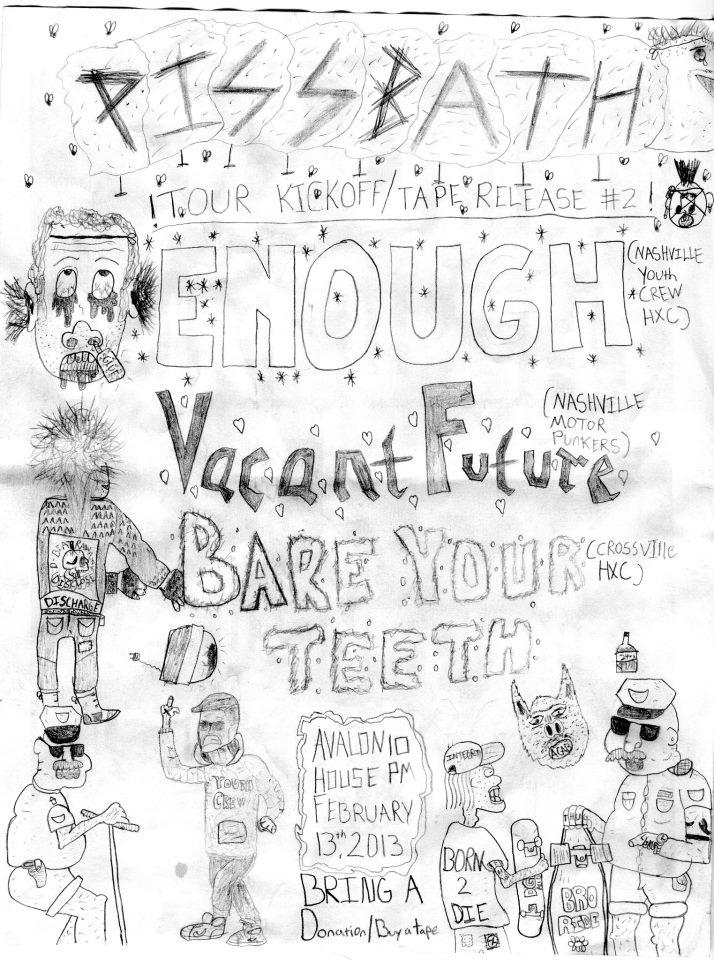 PISSBATH
!TOUR KICKOFF/TAPE RELEASE #2!
ENOUGH
(NASHVILLE
YOUTH
CREW
HXC)
GLUE
Vacant Future
(NASHVILLE
MOTOR
PUNKERS)
BARE YOUR
TEETH
(CROSSVILLE
HXC)
DISCHARGE
YOUTH
CREW
AVALON 10
HOUSE PM
FEBRUARY
13th, 2013
BRING A
Donation/Buy a tape
INTEGRITY
BORN
2
DIE
ACAB
BRO
RIDE